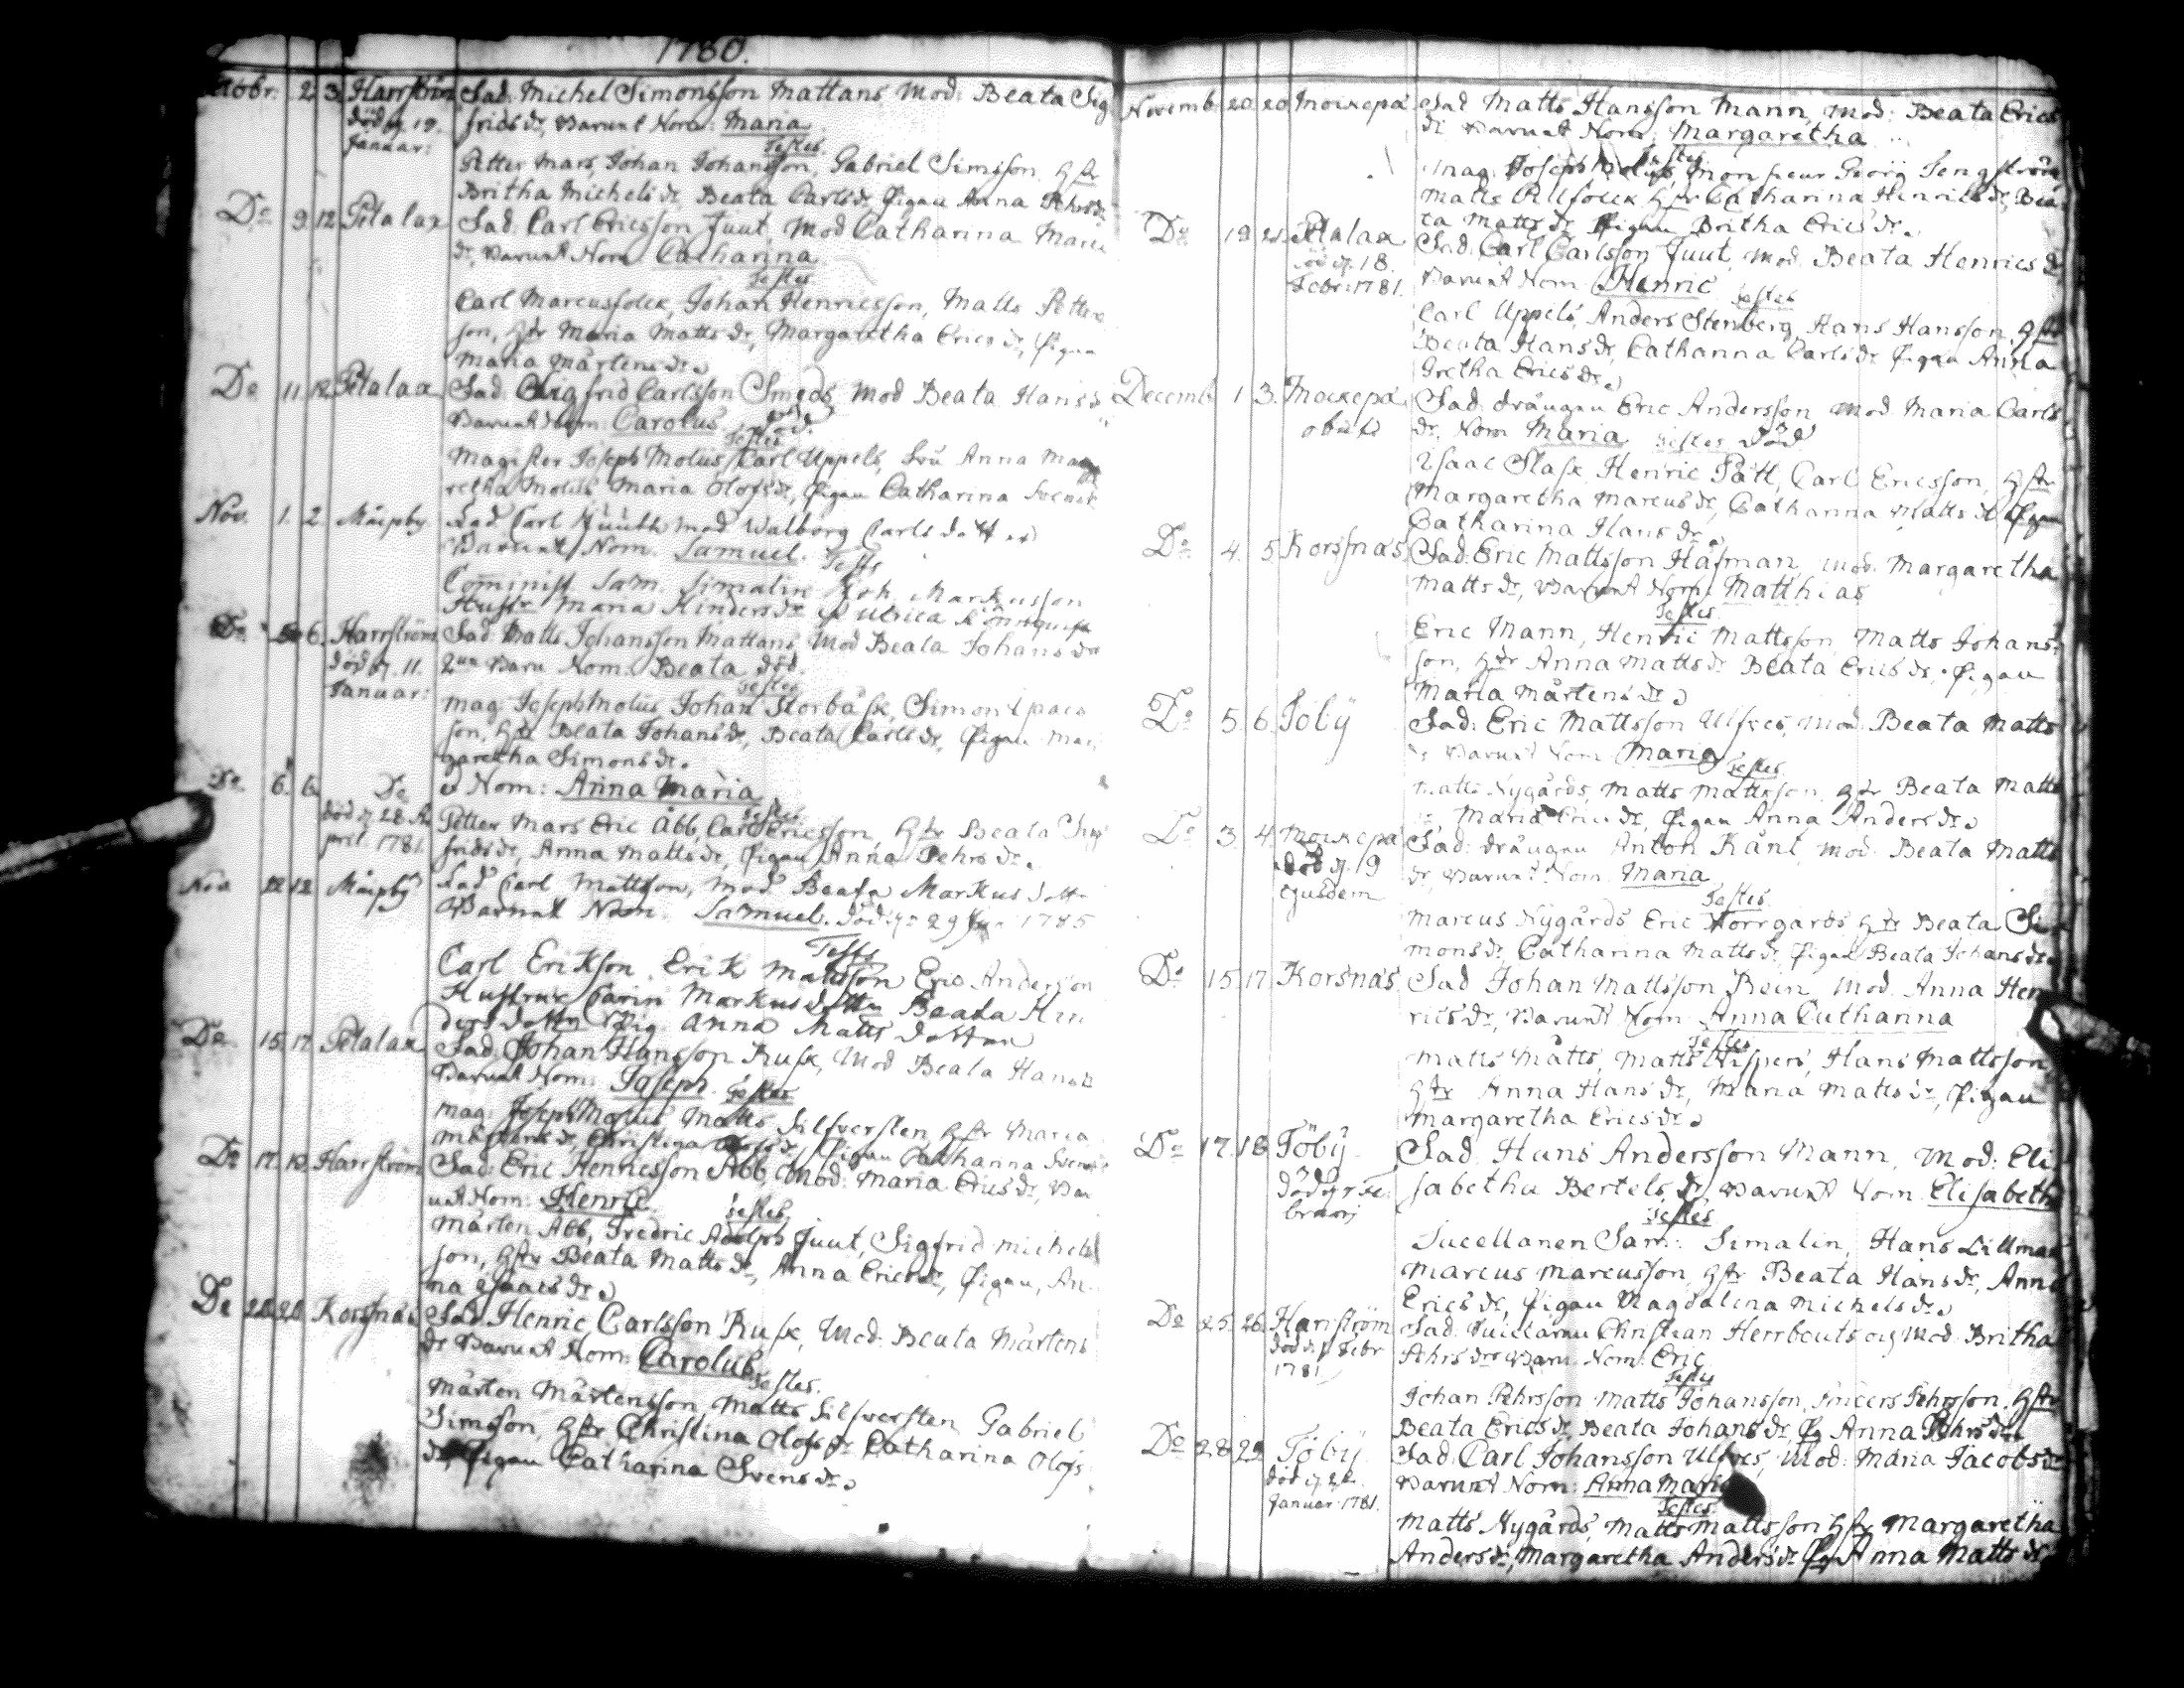 1780.
2 3 Harrström Fad. Michel Simonsson Mattans Mod: Beata Sig
död d. 19. frids dr, Barnet Nom: Maria
Januar: Testes
Petter Mars, Johan Johansson, Gabriel Simsson, hstr
Britha Michels dr, Beata Carls dr, Pigan Anna Pehrs dr
Do 9 12 Petalax Fad. Carl Ericsson Juut, Mod Catharina Marc
dr, Barnet Nom Catharina
Testes
Carl Marcusson, Johan Henricsson, Matts Petters
son, hstr Maria Matts dr, Margaretha Erics dr, Pigan
Maria Mårtens dr
Do 11 12 Petalax Fad. Sigfrid Carlsson Smeds, Mod Beata Hans
Barnet Nom: Carolus död.
Testes
Magister Joseph Molis, Carl Uppels, Fru Anna Marga
retha Molis Maria Olofs dr, Pigan Catharina Svens
Nov. 1. 2. Måspby Fad. Carl mod Walborg Carls dotter
Barnet Nom. Samuel. Tests
Sam. Simalin Joh. Markusson
Hustr Maria Hinders dr Ulrica
Do 6. Harrström Fad. Matts Johansson Mattans, Mod Beata Johans dr
död d. 11. Barn Nom: Beata död.
Januar: Testes
Mag: Joseph Molis Johan Storbåsk, Simon Isacs
son, hstr Beata Johans dr, Beata Carls dr, Pigan Mar
garetha Simons dr.
Do. 6. 6. Do Nom: Anna Maria
Testes
död d 28. A Petter Mars Eric Abb, Carl Ericsson, hstr Beata Sig
pril. 1781. frids dr, Anna Matts dr, Pigan Anna Pehrs dr.
Nov 12 12 Måspby Fad Carl Mattson, mod Beata Markus dott
Barnet Nom. Samuel. död d. 29 1785
Tests
Carl Erikson, Erik Mattson Eric Anderson
Hustrur Carin Markus dotter Beata Hin
ders dotter Pig. Anna Matts dotter
Do 15. 17 Petalax Fad. Johan Hansson Rusk, Mod Beata Hans
Barnet Nom: Joseph. Testes
Mag: Joseph Molis Matts Silfversten, hstr Maria
Mårtens dr, Christina Olofs dr Pigan Catharina Svens
Do 17. 19. Harrström Fad. Eric Henricsson Abb, Mod: Maria Erics dr, Bar
net Nom: Henric Testes
Mårten Abb, Fredric Adolph Juut, Sigfrid Michels
son, hstr Beata Matts dr, Anna Erics dr, Pigan, An
na Isaacs dr
Do 20 20 Korsnäs Fad. Henric Carlsson Rusk, Mod: Beata Mårtens
dr Barnet Nom: Carolus
Testes.
Mårten Mårtensson, Matts Silfversten Gabriel
Simsson, hstr Christina Olofs dr Catharina Olofs
dr Pigan Catharina Svens dr
Novemb. 20 20 Fad Matts Hansson Mann, Mod: Beata Erics
dr Barnet Nom: Margaretha
Testes
Mag: Joseph Molis, Monsieur Georg Tengström
Matts hstr Catharina Henrics dr, Bea
ta Matts dr Pigan Britha Erics dr
Do 19 21 Petalax Fad. Carl Carlsson Juut, Mod. Beata Henrics dr
död d. 18. Barnet Nom: Henric
Febr. 1781. Testes
Carl Uppels, Anders Stenberg, Hans Hansson, hstr
Beata Hans dr, Catharina Carls dr Pigan Anna
Gretha Erics dr
Decemb. 1 3. Fad. drängen Eric Andersson, Mod. Maria Carls
obiit dr, Nom Maria Testes död
Isaac Slask, Henric Pått, Carl Ericsson, hstr
Margaretha Marcus dr, Catharina Matts dr Pigan
Catharina Hans dr
Do 4. 5 Korsnäs Fad. Eric Mattsson Håfman, Mod. Margaretha
Matts dr, Barnet Nom: Matthias
Testes
Eric Mann, Henric Mattsson, Matts Johans
son, hstr Anna Matts dr Beata Erics dr, Pigan
Maria Mårtens dr
Do 5. 6. Töby Fad. Eric Mattsson Ulfves, Mod: Beata Matts
dr Barnet Nom: Maria
Testes
Matts Nygårds, Matts Mattsson, hstr Beata Matts
dr, Maria Erics dr, Pigan Anna Anders dr
Do 3. 4. Fad. drängen Anton Känt, Mod. Beata Matts
död d. 19 dr, Barnet Nom: Maria
ejusdem Testes
Marcus Nygårds Eric Norrgårds, hstr Beata Si
mons dr, Catharina Matts dr Pigan Beata Johans dr
Do 15. 17 Korsnäs Fad Johan Mattsson Rein, Mod. Anna Hen
rics dr, Barnet Nom: Anna Catharina
Testes
Matts Måtts, Matts Hispers, Hans Mattsson
hstr Anna Hans dr, Maria Matts dr, Pigan
Margaretha Erics dr
Do 17. 18 Töby Fad. Hans Andersson Mann, Mod: Eli
sabetha Bertels dr Barnet Nom. Elisabeth
Testes
Sacellanen Sam: Simalin, Hans Lillman
Marcus Marcusson, hstr Beata Hans dr, Anna
Erics dr, Pigan Magdalena Michels dr
Do 25. 26. Harrström Fad. Christian Herrbouts och Mod: Britha
död d. Febr Pehrs dr Barn. Nom: Eric
1781 Testes
Johan Pehrsson Matts Johansson, Anders Pehrsson, hstr
Beata Erics dr, Beata Johans dr, Pig Anna Pehrs dr
Do 28 29 Töby Fad. Carl Johansson Ulfves, Mod: Maria Jacobs dr
död d 22 Barnet Nom: Anna Maria
Januar. 1781. Testes
Matts Nygårds, Matts Mattsson hstr Margaretha
Anders dr, Margaretha Anders dr Pig Anna Matts dr